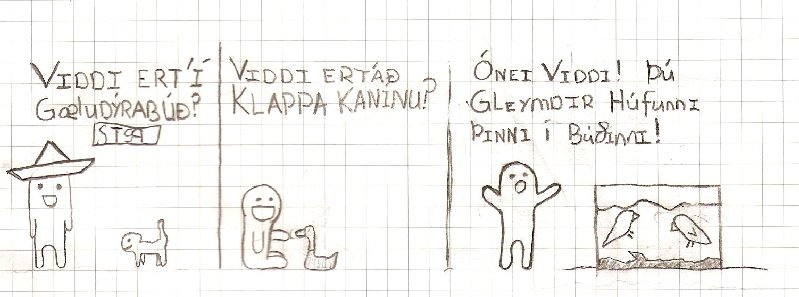 VIDDI ERT'Í
GæluDÝRABÚÐ?
VIDDI ERTÁÐ
KLAPPA KANINU?
ÓNEI VIDDI! ÞÚ
GLEYMDIR HúfuNNI
ÞINNI Í BúðiNNI!